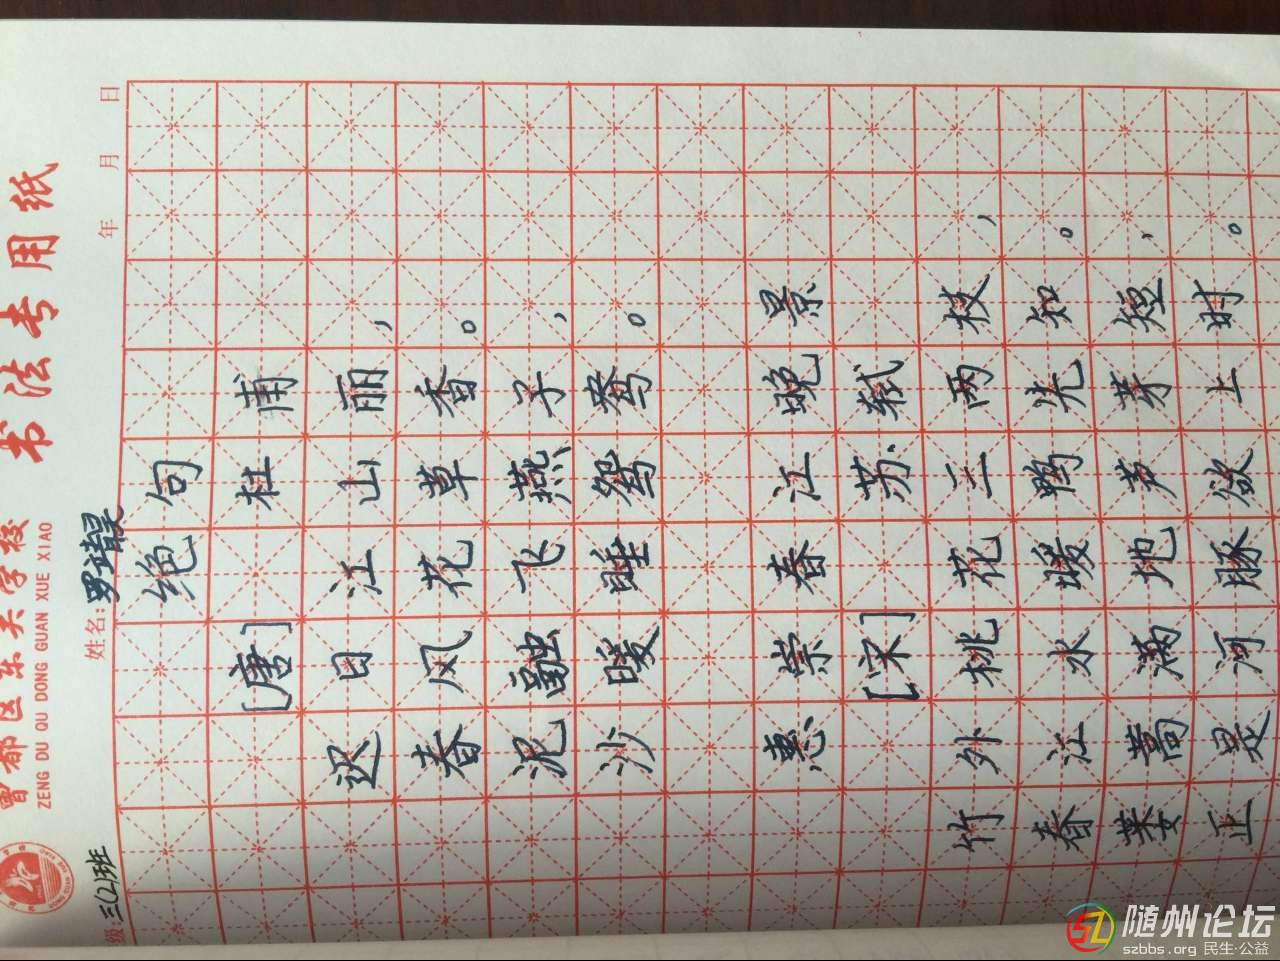 曾都区东关学校 书法专用纸
ZENG DU QU DONG GUAN XUE XIAO
级:三(2)班 姓名:罗 年 月 日
绝句
[唐] 杜甫
迟日江山丽,
春风花草香。
泥融飞燕子,
沙暖睡鸳鸯。
惠崇春江晚景
[宋] 苏轼
竹外桃花三两枝,
春江水暖鸭先知。
蒌蒿满地芦芽短,
正是河豚欲上时。
随州论坛
szbbs.org 民生·公益